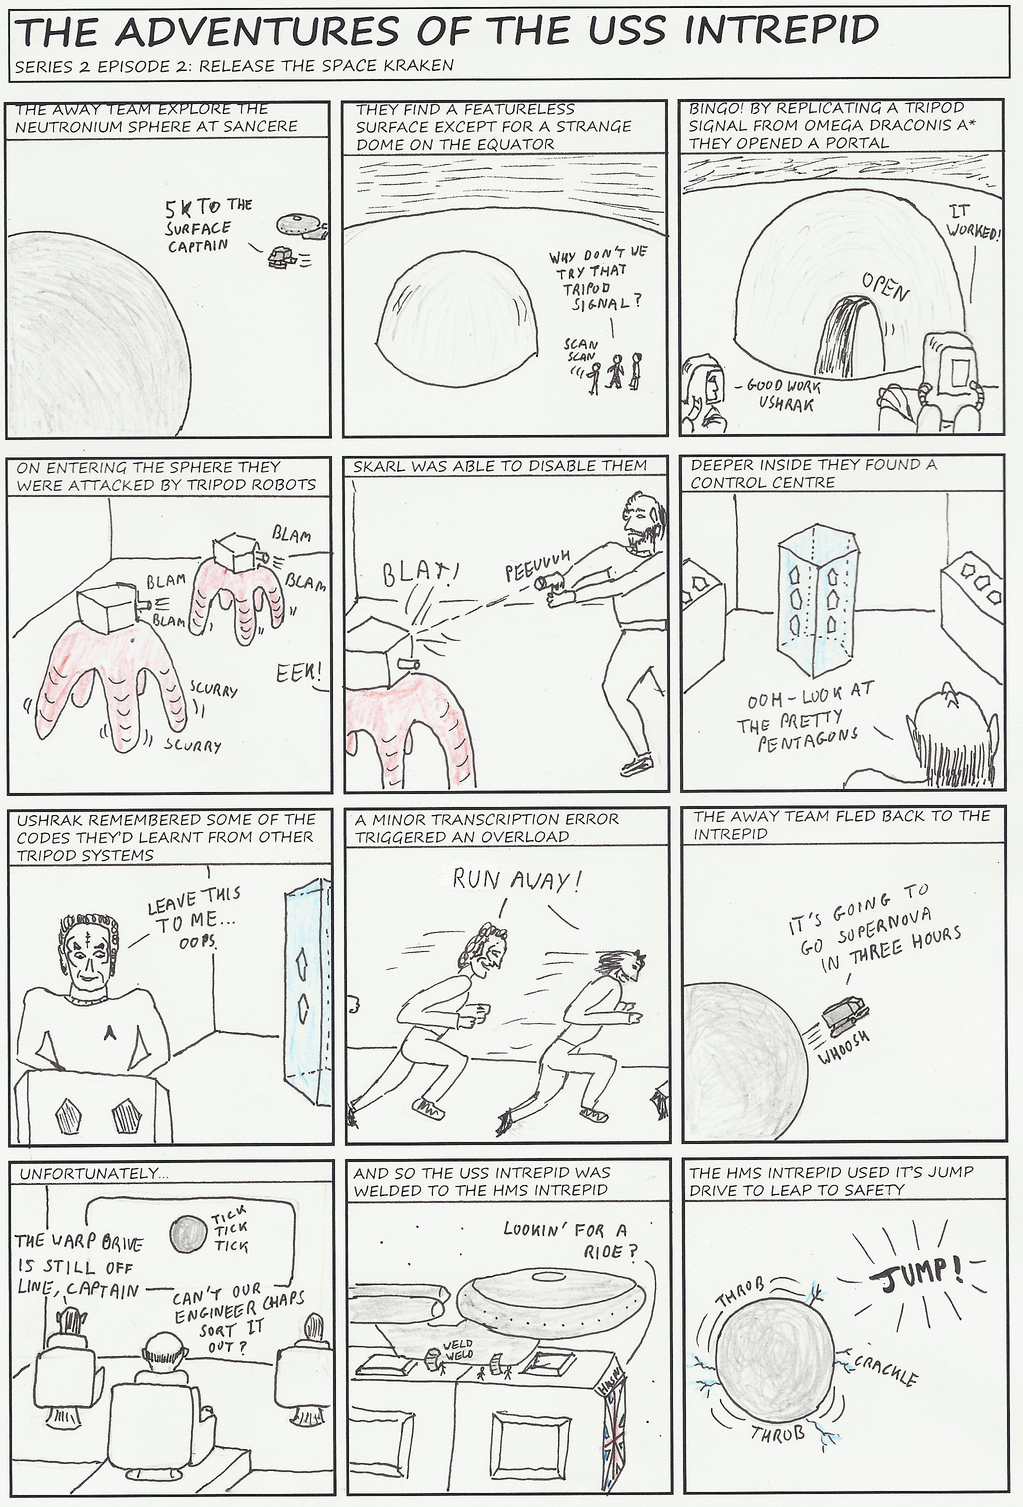 THE ADVENTURES OF THE USS INTREPID
SERIES 2 EPISODE 2: RELEASE THE SPACE KRAKEN
THE AWAY TEAM EXPLORE THE
NEUTRONIUM SPHERE AT SANCERE
5K TO THE
SURFACE
CAPTAIN
THEY FIND A FEATURELESS
SURFACE EXCEPT FOR A STRANGE
DOME ON THE EQUATOR
WHY DON'T WE
TRY THAT
TRIPOD
SIGNAL?
SCAN
SCAN
BINGO! BY REPLICATING A TRIPOD
SIGNAL FROM OMEGA DRACONIS A*
THEY OPENED A PORTAL
IT
WORKED!
OPEN
- GOOD WORK
USHRAK
ON ENTERING THE SPHERE THEY
WERE ATTACKED BY TRIPOD ROBOTS
BLAM
BLAM
BLAM
BLAM
EEK!
SCURRY
SCURRY
SKARL WAS ABLE TO DISABLE THEM
BLAT!
PEEUVUH
DEEPER INSIDE THEY FOUND A
CONTROL CENTRE
OOH-LOOK AT
THE PRETTY
PENTAGONS
USHRAK REMEMBERED SOME OF THE
CODES THEY'D LEARNT FROM OTHER
TRIPOD SYSTEMS
LEAVE THIS
TO ME...
OOPS
A MINOR TRANSCRIPTION ERROR
TRIGGERED AN OVERLOAD
RUN AWAY!
THE AWAY TEAM FLED BACK TO THE
INTREPID
IT'S GOING TO
GO SUPERNOVA
IN THREE HOURS
WHOOSH
UNFORTUNATELY...
TICK
TICK
TICK
THE WARP DRIVE
IS STILL OFF
LINE, CAPTAIN
CAN'T OUR
ENGINEER CHAPS
SORT IT
OUT?
AND SO THE USS INTREPID WAS
WELDED TO THE HMS INTREPID
LOOKIN' FOR A
RIDE?
WELD
WELD
THE HMS INTREPID USED IT'S JUMP
DRIVE TO LEAP TO SAFETY
JUMP!
THROB
CRACKLE
THROB